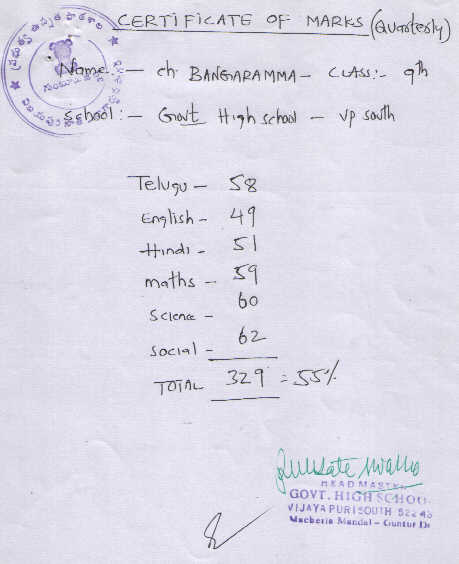 CERTIFICATE OF MARKS (Quarterly)
Name :- ch. BANGARAMMA - CLASS:- 9th
School :- Govt High school - VP South
Telugu - 58
English - 49
Hindi - 51
maths - 59
Science - 60
Social - 62
TOTAL 329 = 55%
HEAD MASTER
GOVT. HIGH SCHOOL
VIJAYAPURI SOUTH 522
Macherla Mandal - Guntur Dt